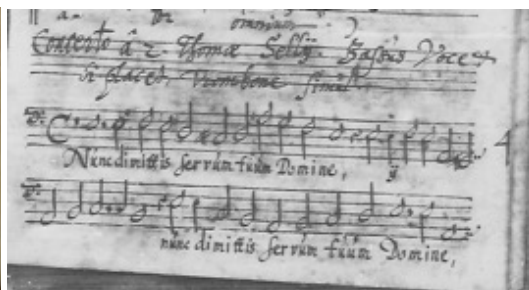 omnium
Concerto â 2. Thomæ Sellij. Bassus Voce et
si placet, Trombone simul.
Nunc dimittis servum tuum Domine, ij
nunc dimittis servum tuum Domine,